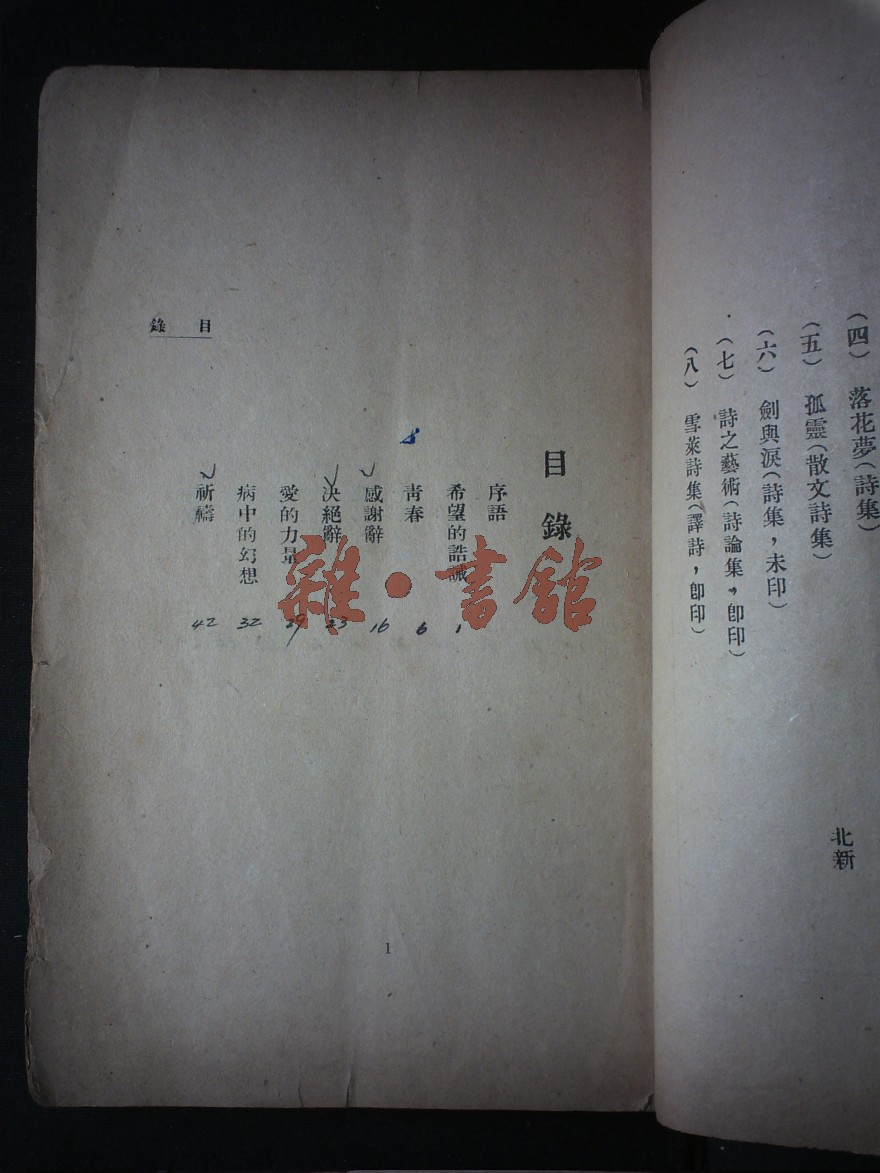 （四） 落花夢（詩集）
（五） 孤靈（散文詩集）
（六） 劍與淚（詩集，未印）
（七） 詩之藝術（詩論集，卽印）
（八） 雪萊詩集（譯詩，卽印）
北新
目錄
目錄
序語
希望的誥誡 1
青春 6
感謝辭 16
決絕辭 23
愛的力量 29
病中的幻想 32
祈禱 42
1
雜·書館